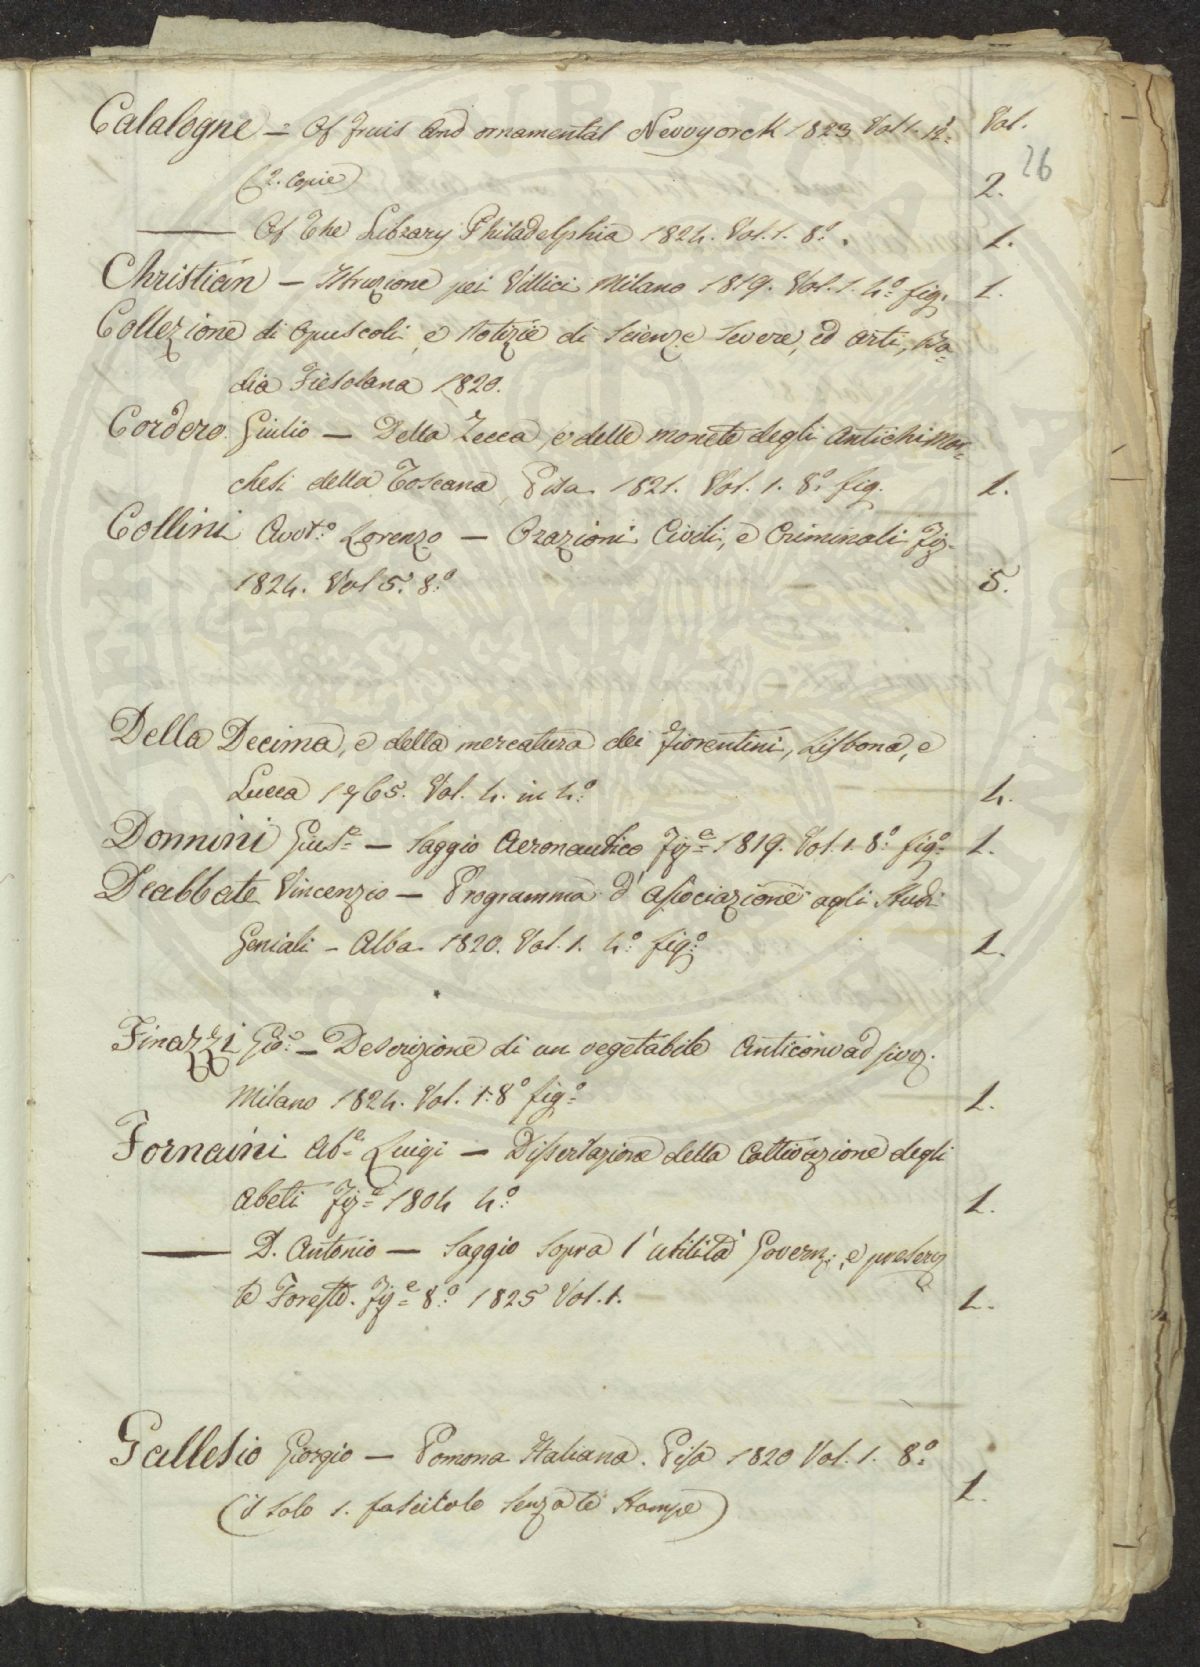 Vol.
26
Catalogne = Of Fruis And ornamental Newyorck 1823 Vol 1. 12°
(2. Copie) 2.
—— Of The Library Philadelphia 1824. Vol. 1. 8°. 1.
Christian — Istruzione pei Villici Milano 1819. Vol. 1. 4° fig. 1.
Collezione di Opuscoli, e Notizie di Scienze Severe, ed Arti, Ba=
dia Fiesolana 1820.
Cordero Giulio — Della Zecca, e delle monete degli Antichi Mar=
chesi della Toscana Pisa 1821. Vol. 1. 8° fig. 1.
Collini Avvto. Lorenzo — Orazioni Civili, e Criminali Fiz.
1824. Vol 5. 8° 5.
Della Decima, e della mercatura dei Fiorentini, Lisbona, e
Lucca 1765. Vol. 4. in 4° 4.
Donnini Giuse. — Saggio Aeronautico Fize. 1819. Vol. 1. 8° figo. 1.
Deabbate Vincenzio — Programma d'associazione agli Studi
Geniali — Alba 1820. Vol. 1. 4° figo. 1.
Finazzi Gio: — Descrizione di un vegetabile
Milano 1824. Vol. 1. 8° figo. 1.
Fornaini Abe. Luigi — Dissertazione della Coltivazione degli
Abeti Fize. 1804 4° 1.
—— D. Antonio — Saggio Sopra l'utilità Govern: e preserv
Foreste. Fize. 8° 1825 Vol. 1. 1.
Gallesio Giorgio — Pomona Italiana. Pisa 1820 Vol. 1. 8°
(il solo 1. fascicolo senza le stampe) 1.